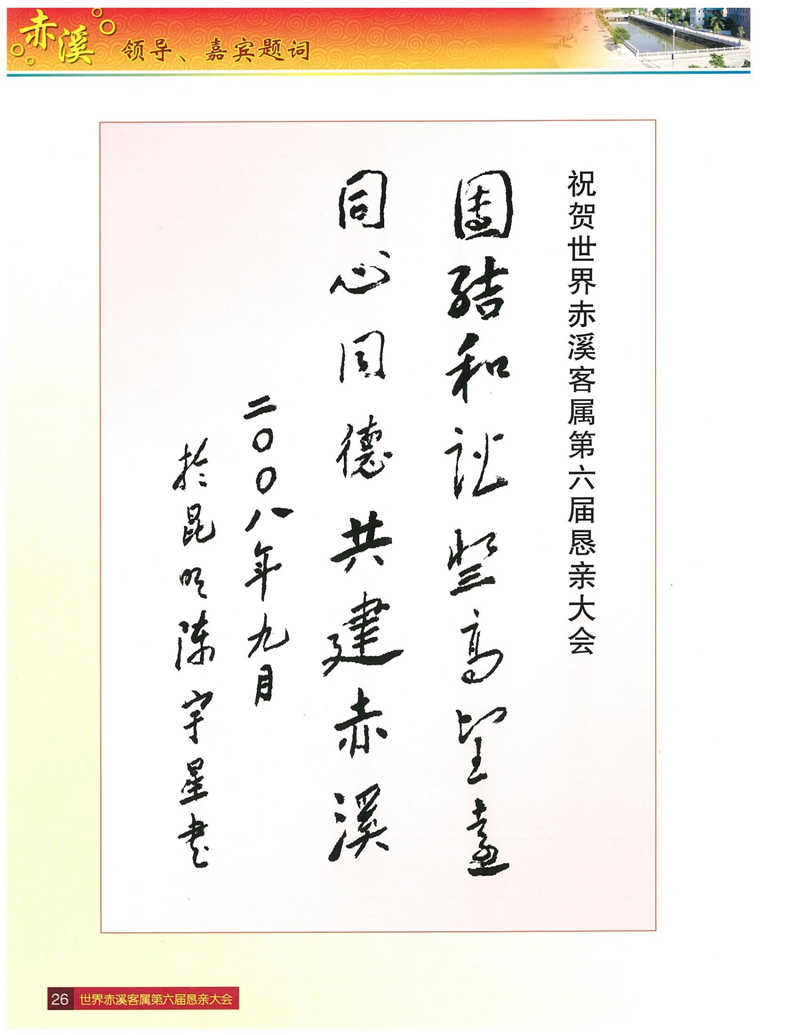 赤溪 领导、嘉宾题词
祝贺世界赤溪客属第六届恳亲大会
團结和谐登高望远
同心同德共建赤溪
二〇〇八年九月
於昆明陈宇星书
26 世界赤溪客属第六届恳亲大会